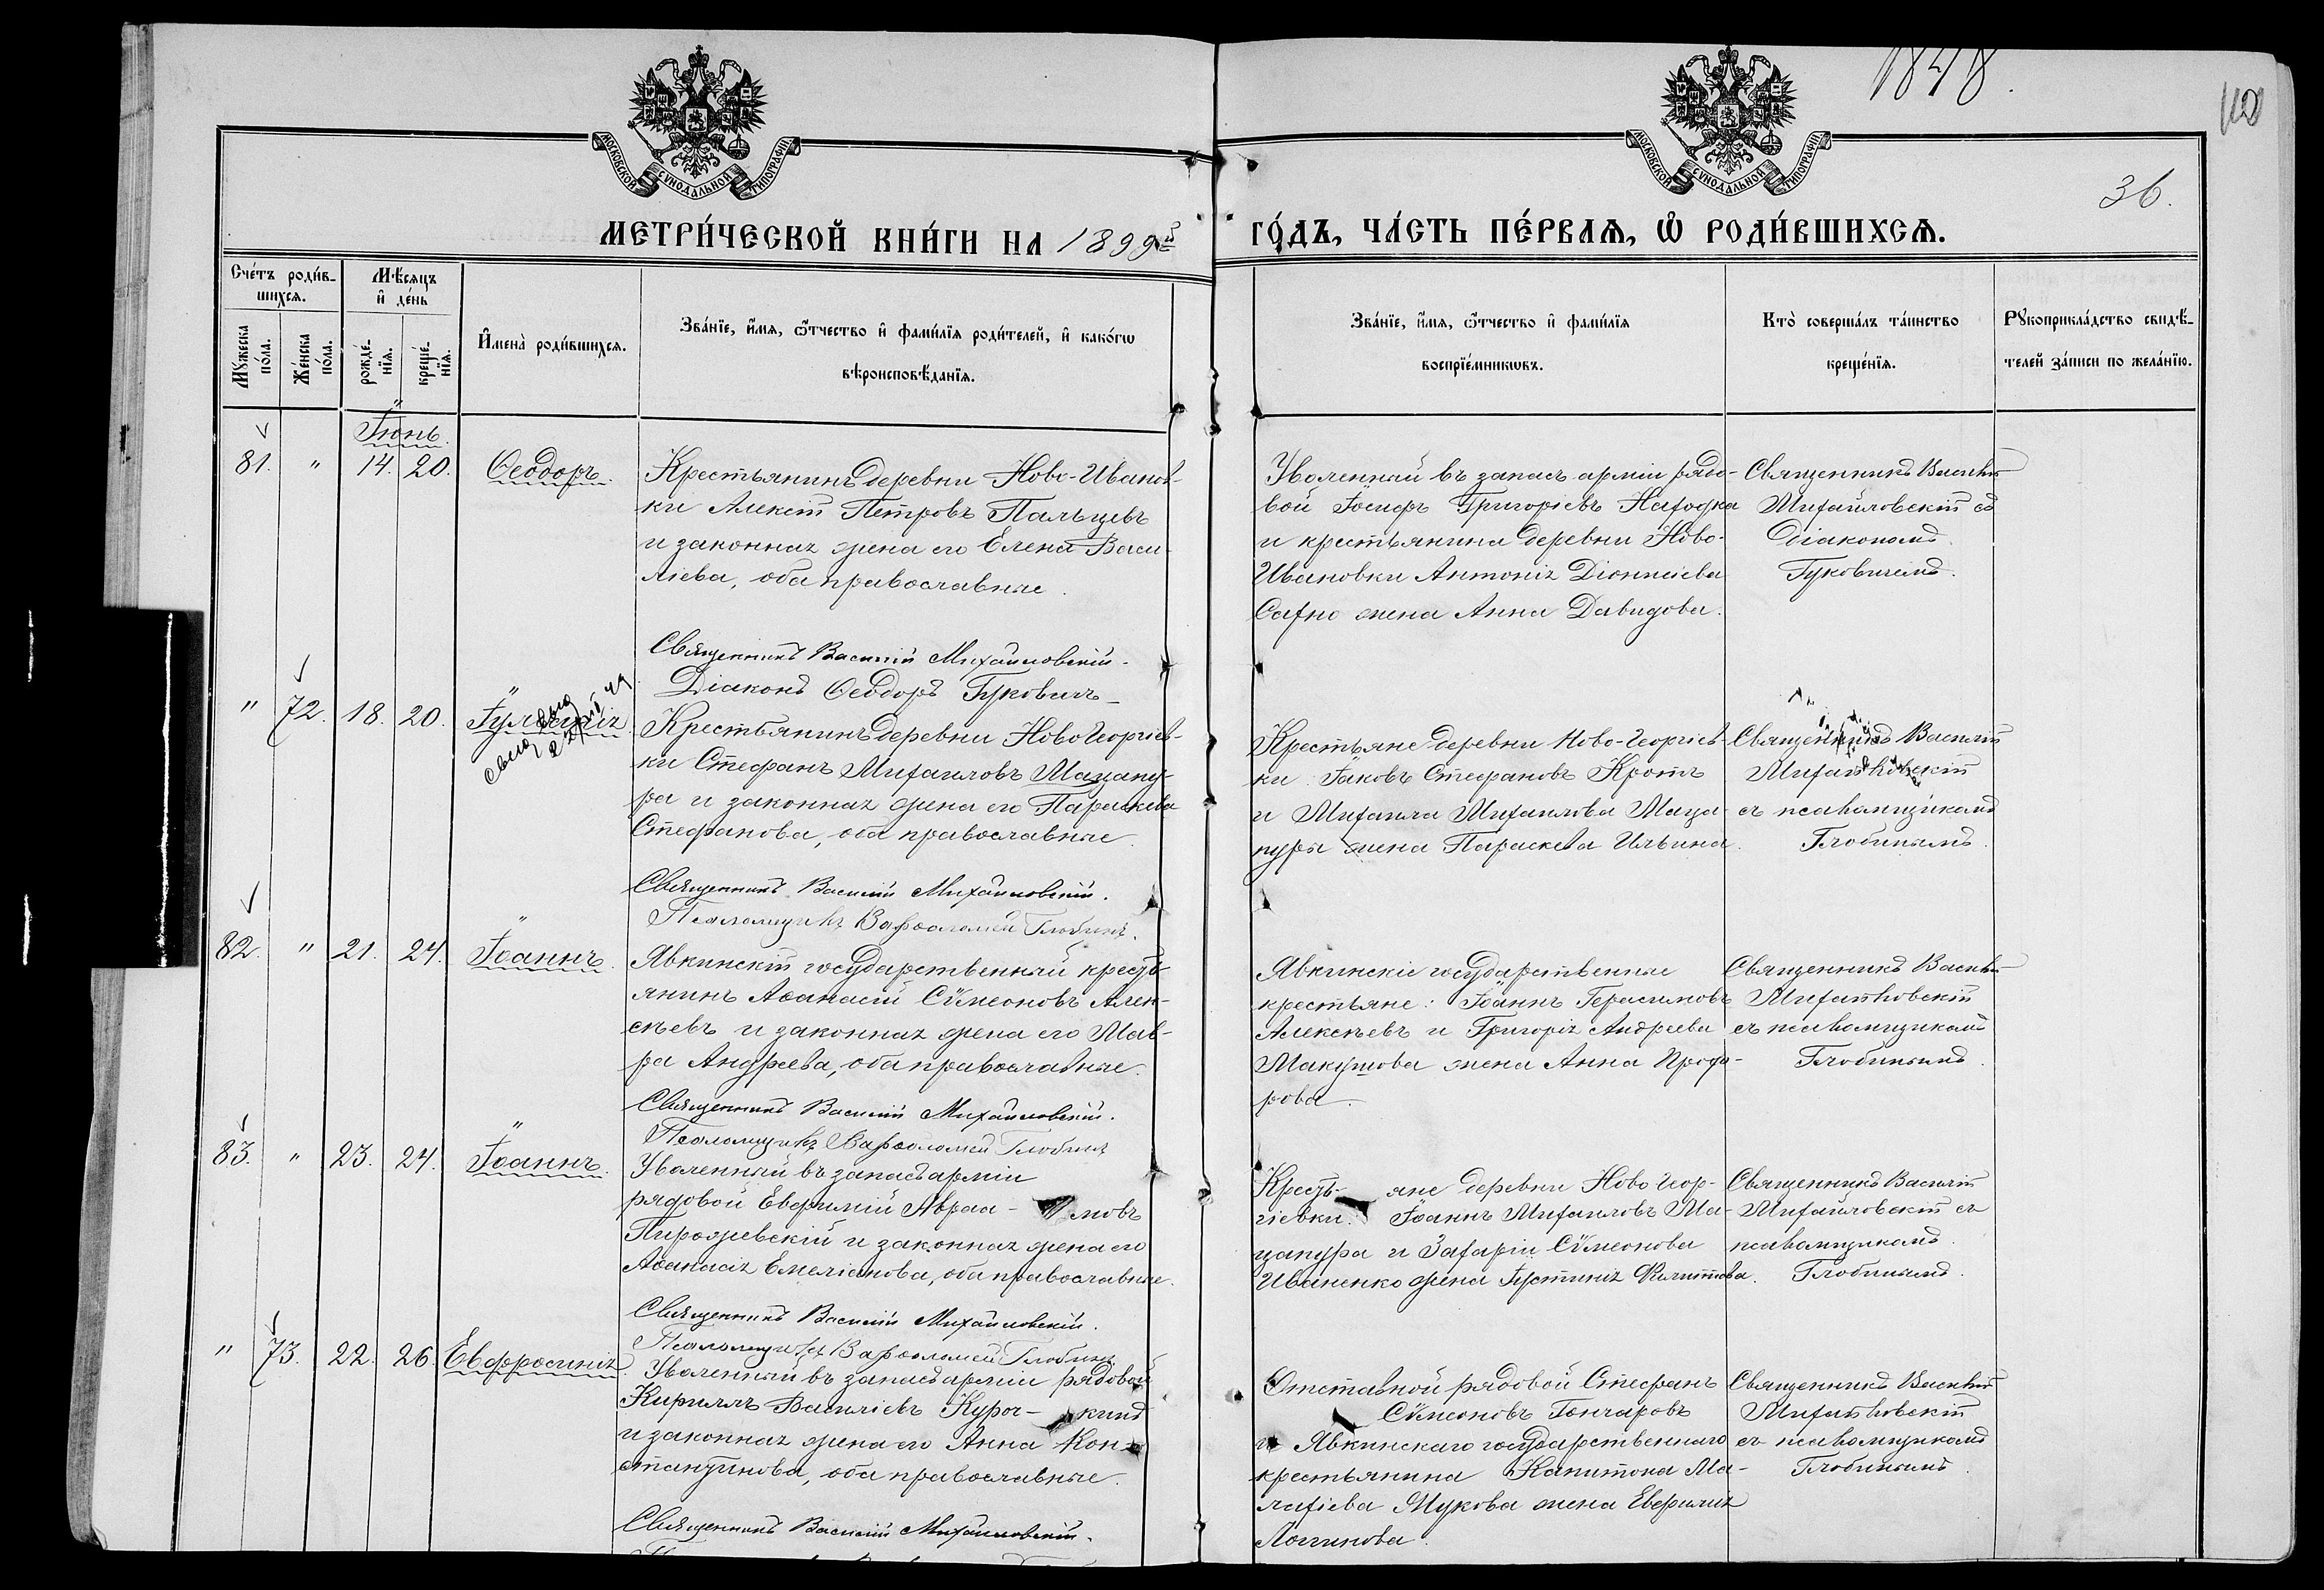 1848.
110
36.
МОСКОВСКОЙ СѴНОДАЛЬНОЙ ТИПОГРАФІИ
МОСКОВСКОЙ СѴНОДАЛЬНОЙ ТИПОГРАФІИ
МЕТРИ́ЧЕСКОЙ КНИ́ГИ НА 1899й ГО́ДЪ, ЧА́СТЬ ПЕ́РВАѦ, Ѡ҆ РОДИ́ВШИХСѦ.
Сче́тъ роди́в-
шихсѧ.
Мѣ́сѧцъ
и҆ де́нь
Мꙋ́жеска по́ла.
Же́нска по́ла.
рожде́-
нїѧ.
креще́-
нїѧ.
И҆мена̀ роди́вшихсѧ.
Зва́нїе, и҆́мѧ, ѻ҆́тчество и҆ фами́лїѧ роди́телей, и҆ како́гѡ
вѣроисповѣ́данїѧ.
Зва́нїе, и҆́мѧ, ѻ҆́тчество и҆ фами́лїѧ
воспрїе́мникѡвъ.
Кто̀ соверша́лъ та́инство
креще́нїѧ.
Рꙋкоприкла́дство свидѣ́-
телей за́писи по жела́нїю.
Іюнь.
81. " 14. 20. Ѳеодоръ.
Крестьянинъ деревни Ново-Иванов-
ки Алексій Петровъ Пальцевъ
и законная жена его Елена Васи-
ліева, оба православные.
Священникъ Василій Михайловскій.
Діаконъ Ѳеодоръ Гуковичъ
Уволенный въ запасъ арміи рядо-
вой Іосифъ Григоріевъ Находка
и крестьянина деревни Ново-
Ивановки Антонія Діонисіева
Сахно жена Анна Давидова.
Священникъ Василій
Михайловскій съ
діакономъ
Гуковичемъ.
" 72. 18. 20. Іуліанія.
Крестьянинъ деревни Ново Георгіев-
ки Стефанъ Михаиловъ Мацапу-
ра и законная жена его Параскева
Стефанова, оба православные.
Священникъ Василій Михайловскій.
Псаломщикъ Варѳоломей Глобинъ.
Крестьяне деревни Ново-Георгіев-
ки Іаковъ Стефановъ Кротъ
и Михаила Михаилова Маца-
пуры жена Параскева Ильина.
Священникъ Василій
Михайловскій
съ псаломщикомъ
Глобинымъ.
82. " 21. 24. Іоаннъ.
Явкинскій государственный кресть-
янинъ Аѳанасій Сѵмеоновъ Алек-
сѣевъ и законная жена его Мав-
ра Андреева, оба православные.
Священникъ Василій Михайловскій.
Псаломщикъ Варѳоломей Глобинъ
Явкинскіе государственные
крестьяне: Іоаннъ Герасимовъ
Алексѣевъ и Григорія Андреева
Макушова жена Анна Прохо-
рова.
Священникъ Василій
Михайловскій
съ псаломщикомъ
Глобинымъ.
83. " 23. 24. Іоаннъ.
Уволенный въ запасъ арміи
рядовой Евфимій Авраа-мовъ
Пирожевскій и законная жена его
Аѳанасія Емеліанова, оба православные.
Священникъ Василій Михайловскій.
Псаломщикъ Варѳоломей Глобинъ
Кресть-яне деревни Ново Геор-
гіевки: Іоаннъ Михаиловъ Ма-
цапура и Захаріи Сѵмеонова
Иваненко жена Іустинія Филиппова.
Священникъ Василій
Михайловскій съ
псаломщикомъ
Глобинымъ.
" 73. 22. 26. Евфросинія.
Уволенный въ запасъ арміи рядовой
Кириллъ Василіевъ Куроч-кинъ
и законная жена его Анна Кон-
стантинова, оба православные.
Священникъ Василій Михайловскій.
Отставной рядовой Стефанъ
Сѵмеоновъ Гончаровъ
и Явкинскаго государственнаго
крестьянина Капитона Ма-
лахіева Жукова жена Евфимія
Логгинова.
Священникъ Василій
Михайловскій
съ псаломщикомъ
Глобинымъ.